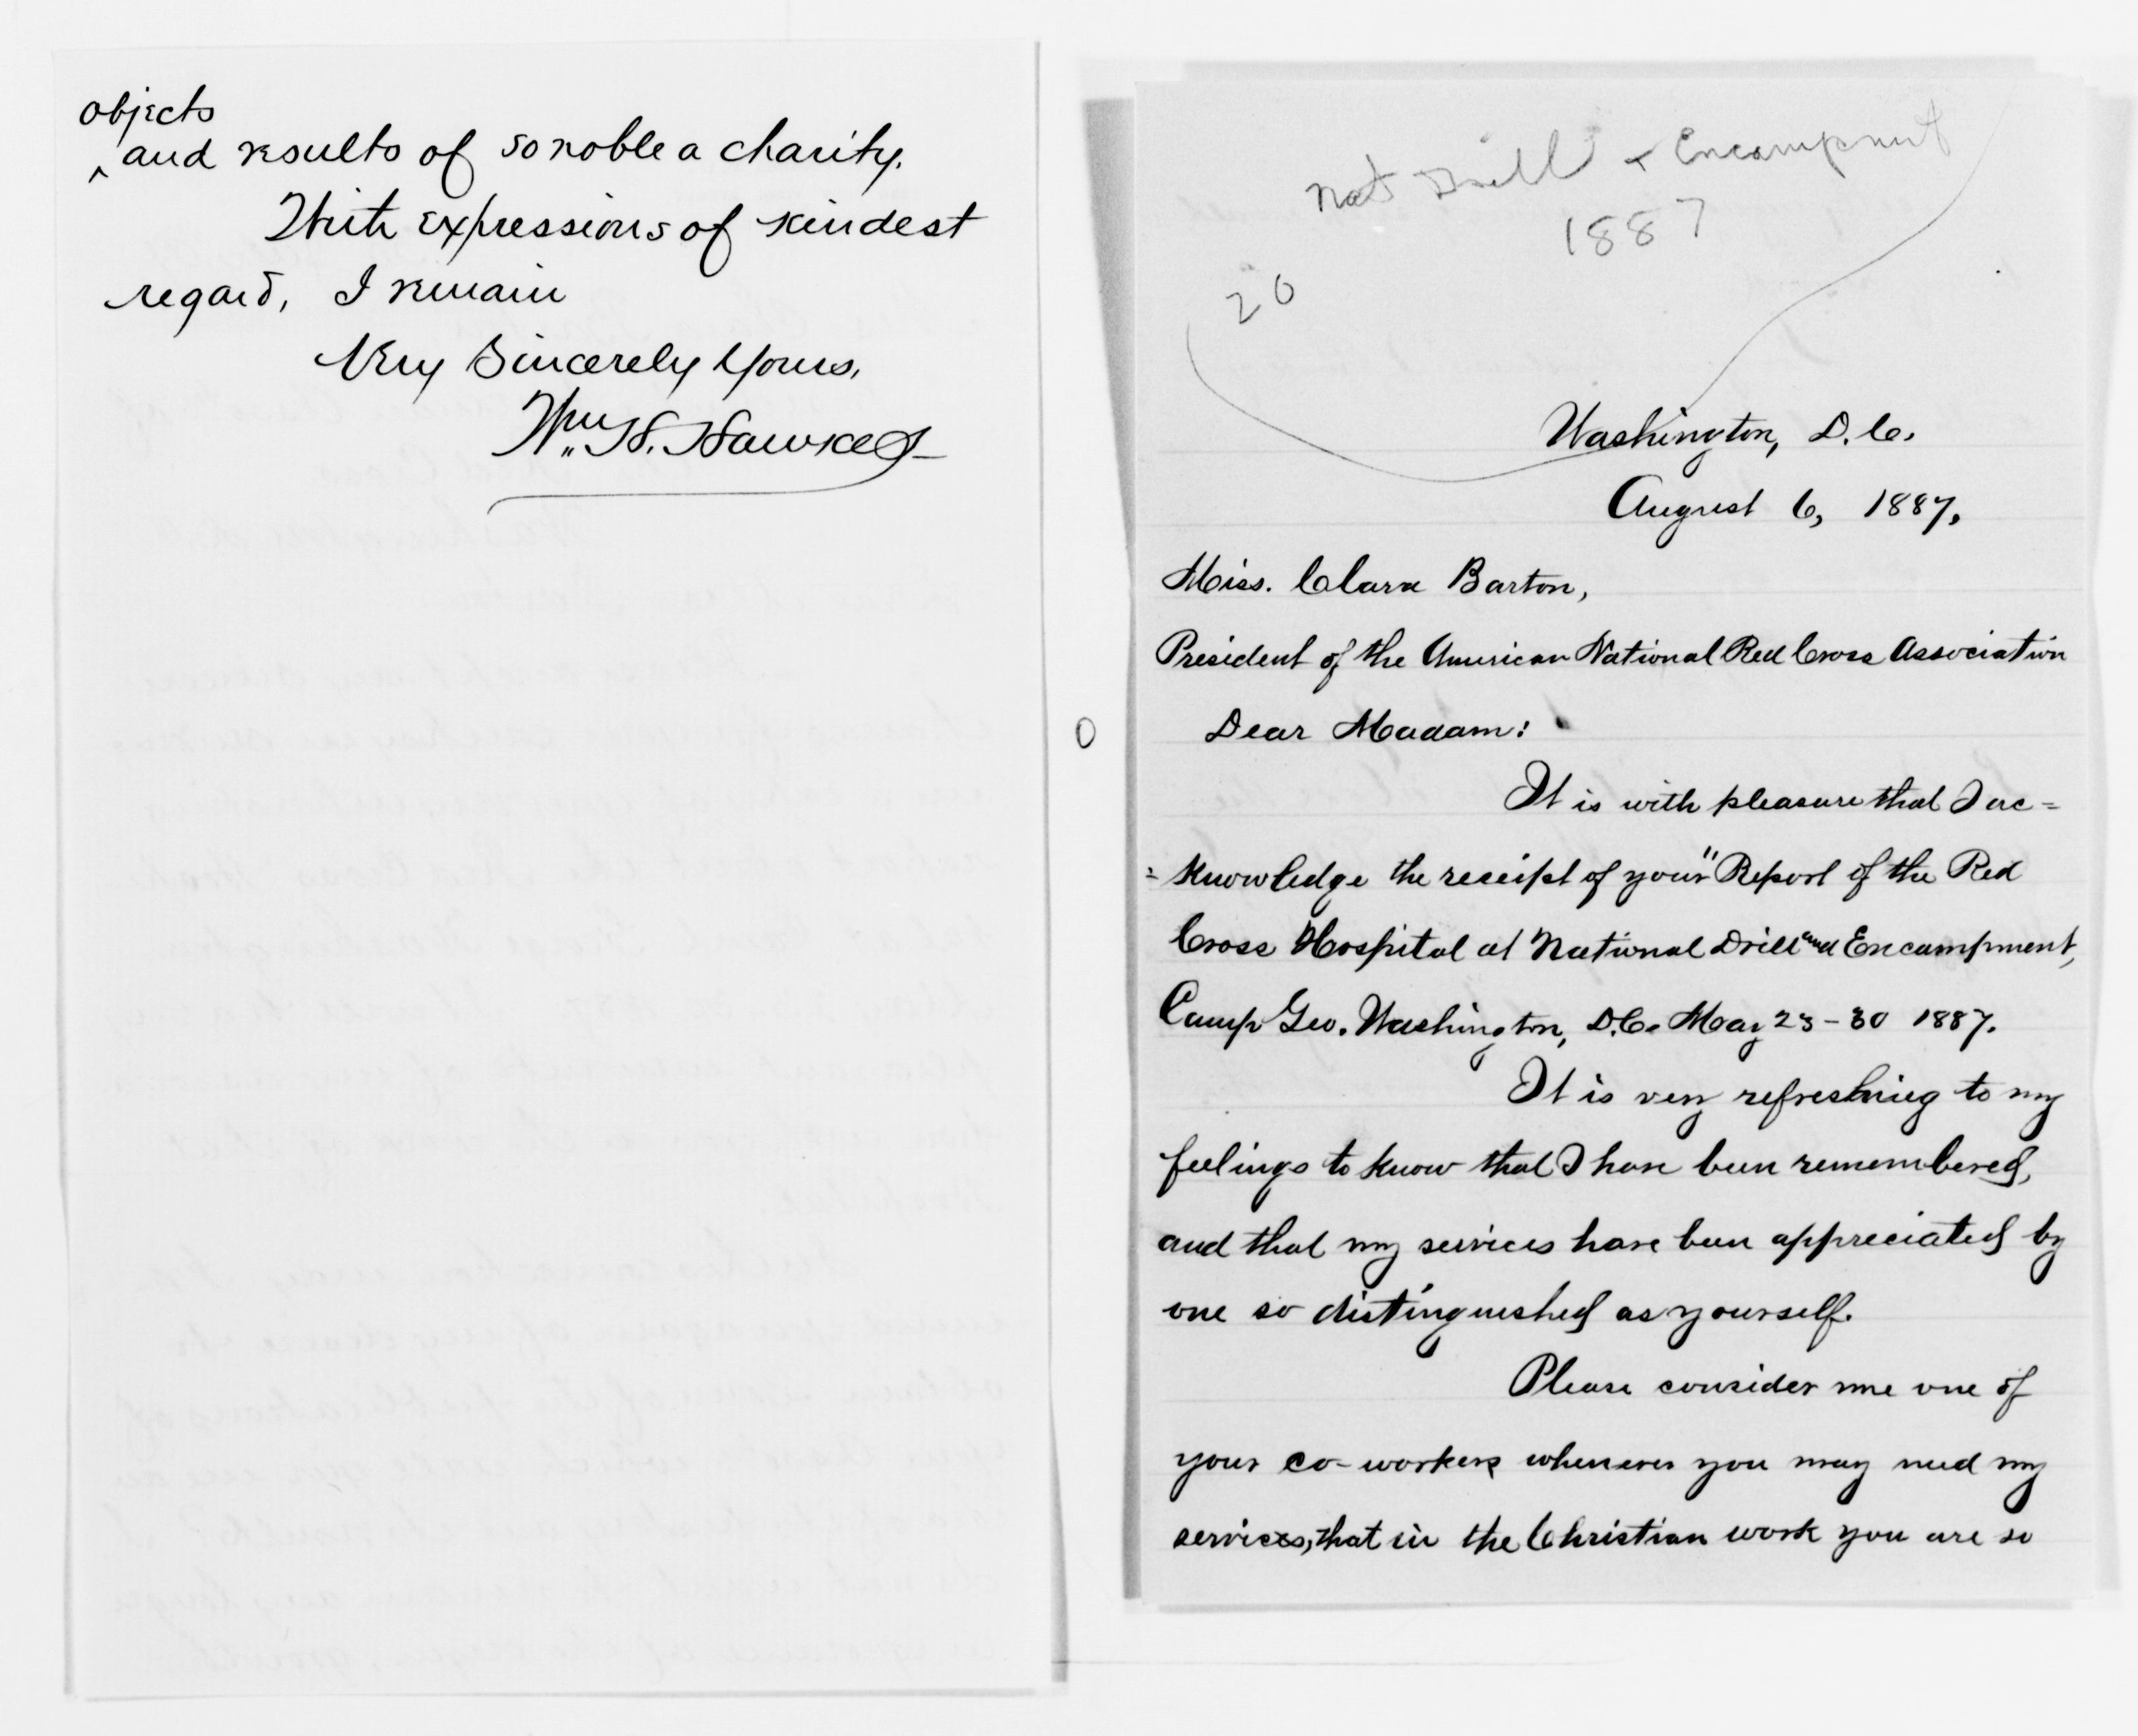 objects
^ and results of so noble a charity.
With expressions of kindest
regard, I remain
Very Sincerely Yours,
Wm. H. Hawkes
Nat Drill & Encampment
1887
20
Washington, D.C.
August 6, 1887.
Miss. Clara Barton,
President of the American National Red Cross Association
Dear Madam:
It is with pleasure that I ac=
=knowledge the receipt of your "Report of the Red
Cross Hospital at National Drill and Encampment,
Camp Geo. Washington, D.C. May 23-30 1887.
It is very refreshing to my
feelings to know that I have been remembered,
and that my services have been appreciated by
one so distinguished as yourself.
Please consider me one of
your co-workers whenever you may need my
services, that in the Christian work you are so